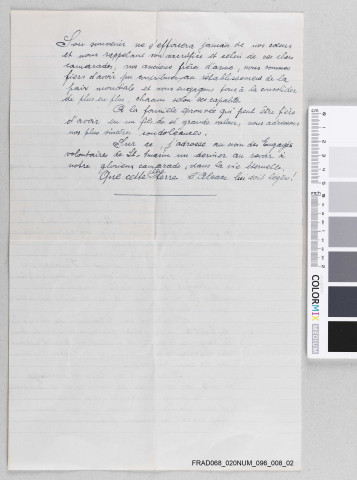 Son souvenir ne s'effacera jamais de nos cœurs
et nous rappelant son sacrifice et celui de ces chers
camarades, nos anciens frère d'arme, nous sommes
fiers d'avoir pu contribuer au rétablissement de la
paix mondiale et nous engageons tous à la consolider
de plus en plus, chacun selon ses capacités.
A la famille éprouvée qui peut être fière
d'avoir eu un fils de si grande valeur, nous adressons
nos plus sincères condoléances.
Sur ce, j'adresse au nom des Engagés
volontaires de Ste Marie un dernier au revoir à
notre glorieux camarade, dans la vie éternelle.
Que cette Terre d'Alsace lui soit légère!
COLORMIX
FRAD068_020NUM_096_008_02